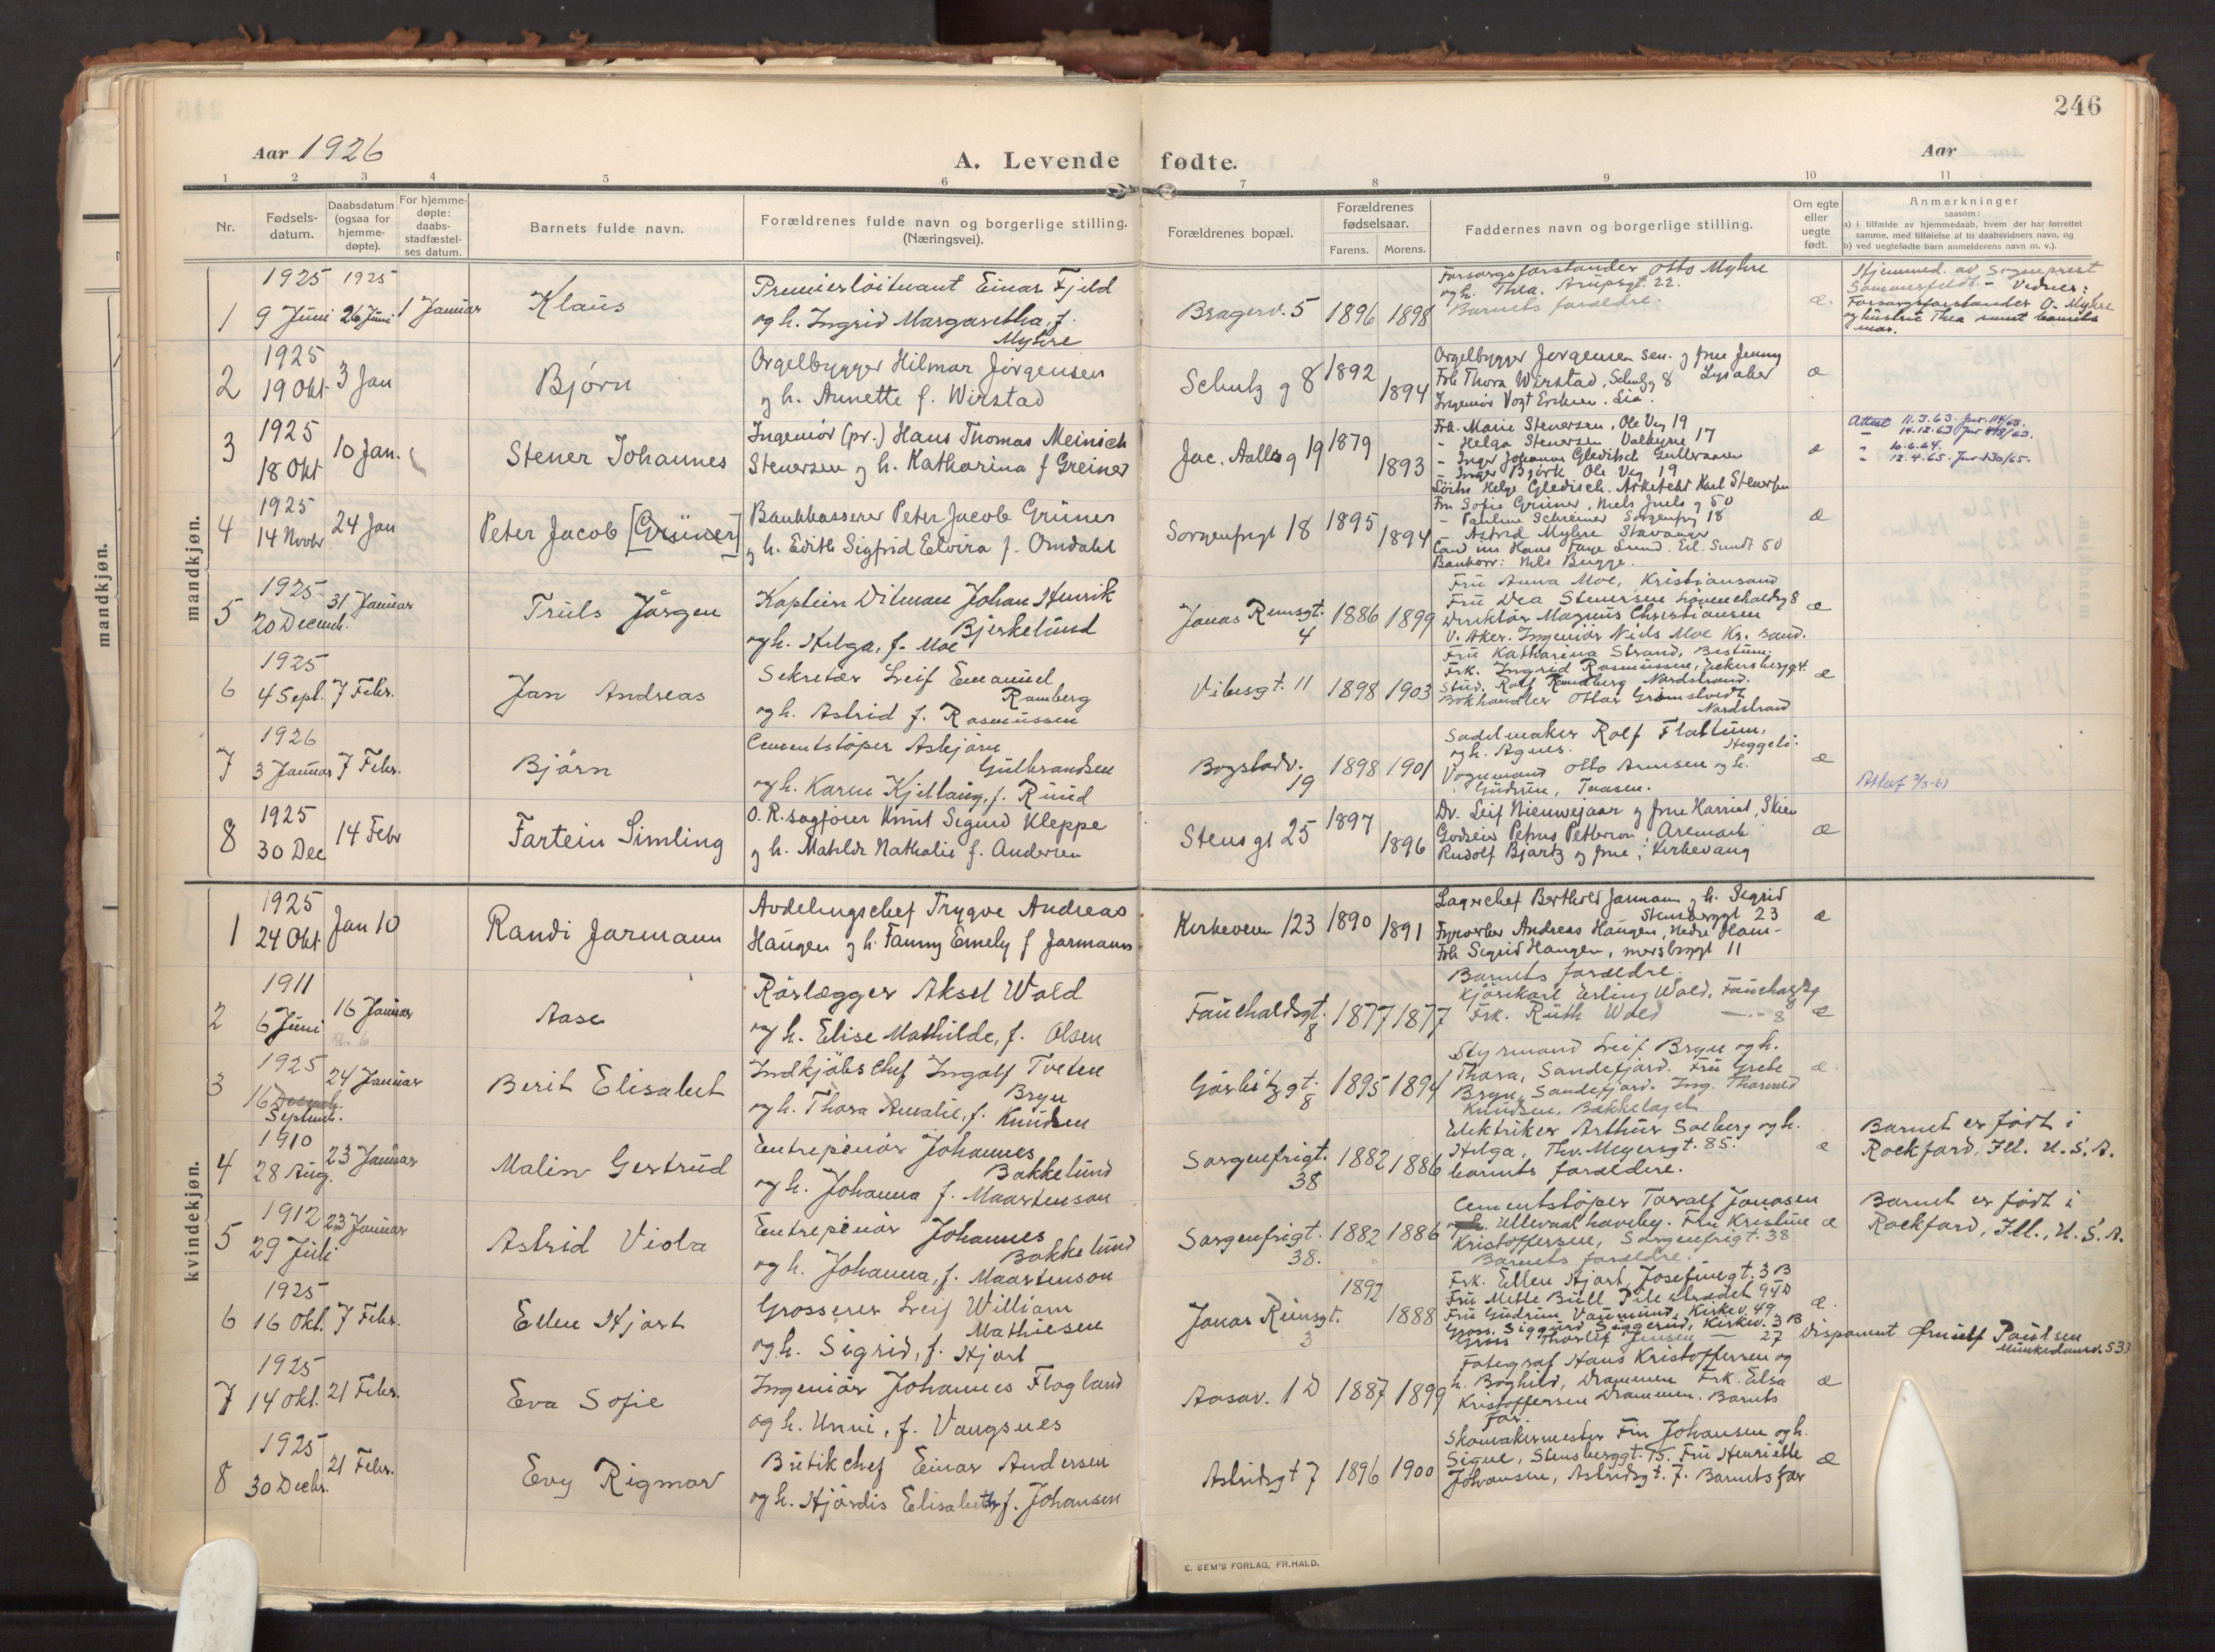 246
Aar 1926
A. Levende fødte.
Aar
1 2 3 4 5 6 7 8 9 10 11
Nr.
Fødsels-
datum.
Daabsdatum
(ogsaa for
hjemme-
døpte).
For hjemme-
døpte:
daabs-
stadfæstel-
ses datum.
Barnets fulde navn.
Forældrenes fulde navn og borgerlige stilling.
(Næringsvei).
Forældrenes bopæl.
Forældrenes
fødselsaar.
Farens. Morens.
Faddernes navn og borgerlige stilling.
Om egte
eller
uegte
født.
Anmerkninger
saasom:
a) i tilfælde av hjemmedaab, hvem der har forrettet
samme, med tilføielse af to daabsvidners navn, og
b) ved uegtefødte barn anmelderens navn m. v.).
mandkjøn.
mandkjøn.
1
1925
9 Juni
1925
26 Juni
1 Januar
Klaus
Premierløitnant Einar Fjeld
og h. Ingrid Margaretha, f.
Myhre
Bragerv. 5
1896 1898
Forsorgsforstander Otto Myhre
og h. Thea. Arupsgt. 22.
Barnets forældre.
æ.
Hjemmed. av Sogneprest
Sommerfeldt. - Vidner:
Forsorgsforstander O. Myhre
og hustru Thea samt barnets
mor.
2
1925
19 Okt
3 Jan
Bjørn
Orgelbygger Hilmar Jørgensen
og h. Annette f. Wirstad
Schulz g 8
1892 1894
Orgelbygger Jørgensen sen. og frue Jenny
Frk Thora Wirstad, Schulzg 8 Lysaker
Ingeniør Vogt Eriksen. Lia.
æ
3
1925
18 Okt
10 Jan.
Stener Johannes
Ingeniør (pr.) Hans Thomas Meinich
Stenersen og h. Katharina f Greiner
Jac. Aalls g 19
1879 1893
Frk. Marie Stenersen, Ole Vig 19
- Helga Stenersen Valkyrie 17
- Inger Johanne Gleditsch Gulleraasen
- Inger Bjørk Ole Vig 19
Løitn Helge Gledisch. Arkitekt Karl Stenersen
æ
Attest 11.3.63. Jnr. 114/63.
" 14.12.63 Jnr 498/63.
" 10.6.64.
" 12.4.65. Jnr. 130/65.
4
1925
14 Novbr
24 Jan
Peter Jacob [Grüner]
Bankkasserer Peter Jacob Grüner
og h. Edith Sigfrid Elvira f. Omdahl
Sorgenfrigt 18
1895 1894
Fru Sofie Grüner, Niels Juels g 50
- Pauline Schreiner Sorgenfrig 18
- Astrid Myhre Stavanger
Cand ius Hans Faye Lund. Eil. Sundt 50
Bankorr: Nils Bugge.
æ
5
1925
20 Decemb.
31 Januar
Truls Jørgen
Kaptein Ditman Johan Henrik
Bjerkelund
og h. Helga, f. Moe
Jonas Reinsgt.
4
1886 1899
Fru Anna Moe, Kristiansand
Fru Dea Stenersen Løvenskioldsg 8
Direktør Magnus Christiansen
V. Aker. Ingeniør Niels Moe Kr. sand.
æ
6
1925
4 Sept.
7 Febr.
Jan Andreas
Sekretær Leif Emanuel
Ramberg
og h. Astrid f. Rasmussen
Vibesgt. 11
1898 1903
Fru Katharina Strand, Bestum.
Frk. Ingrid Rasmussen, Eckersberggt.
Stud. Rolf Ramberg Nordstrand.
Bokhandler Ottar Grimstvedt
Nordstrand
æ
7
1926
3 Januar
7 Febr.
Bjørn
Cementstøper Asbjørn
Gulbrandsen
og h. Karen Kjellaug, f. Ruud
Bogstadv.
19
1898 1901
Sadelmaker Rolf Flattum,
og h. Agnes. Heggeli.
Vognmand Otto Arnesen og h.
Gudrun, Taasen.
æ
8
1925
30 Dec
14 Febr
Fartein Simling
O. R. sagfører Knut Sigurd Kleppe
og h. Matilde Nathalie f. Andersen
Stensgt 25
1897 1896
Dr. Leif Nieuwejaar og frue Harriet, Skien
Godseier Petrus Petterson; Aremark
Rudolf Bjartz og frue; Kirkevang
æ
kvindekjøn.
1
1925
24 Okt.
Jan 10
Randi Jarmann
Avdelingschef Trygve Andreas
Haugen og h. Fanny Emely f Jarmann
Kirkeveien 123
1890 1891
Lagerchef Berthold Jarmann og h. Sigrid
Stensberggt 23
Fyrverker Andreas Haugen, Nedre Ham-
Frk Sigrid Haugen, mersborggt 11
æ
2
1911
6 Juni
16 Januar
Aase
Rørlægger Aksel Wold
og h. Elise Mathilde, f. Olsen
Fauchaldsgt.
8
1877 1877
Barnets forældre.
Kjørekarl Erling Wold, Fauchaldsg
Frk. Ruth Wold - " - 8
æ
3
1925
16 Septemb.
24 Januar
Berit Elisabet
Indkjøbschef Ingolf Tveten
Bryn
og h. Thora Amalie, f. Knudsen
Gørbitzgt.
8
1895 1894
Styrmand Leif Bryn og h.
Thora, Sandefjord. Fru Grete
Bryn, Sandefjord. Ing. Thorvald
Knudsen. Bækkelaget
æ.
4
1910
28 Aug.
23 Januar
Malin Gertrud
Entrepenør Johannes
Bakkelund
og h. Johanna f. Maartenson
Sorgenfrigt.
38
1882 1886
Elektriker Arthur Solberg og h.
Helga, Thv. Meyersgt. 85.
barnets forældre.
æ
Barnet er født i
Rockford, Ill. U.S.A.
5
1912
29 Juli
23 Januar
Astrid Viola
Entrepenør Johannes
Bakkelund
og h. Johanna, f. Maartenson
Sorgenfrigt.
38.
1882 1886
Cementstøper Toralf Jonasen
og h. Ullevaal haveby. Fru Kristine
Kristoffersen, Sorgenfrigt. 38
Barnets forældre.
æ
Barnet er født i
Rockford, Ill., U.S.A.
6
1925
16 Okt.
7 Febr.
Ellen Hjort
Grosserer Leif William
Mathiesen
og h. Sigrid, f. Hjort
Jonas Reinsgt.
3
1892 1888
Frk. Ellen Hjort, Josefinegt. 3B
Fru Mette Bull Pilestrædet 94D
Fru Gudrun Vaumund, Kirkev. 49
Gross. Sigurd Seggerud, Kirkev. 3B
Gross Thorleif Jensen — 27 Disponent Ørnulf Paulsen
Munkedamsv. 53)
æ.
7
1925
14 Okt.
21 Febr.
Eva Sofie
Ingeniør Johannes Flogland
og h. Unni, f. Vangsnes
Aasav. 1D
1887 1899
Fotograf Hans Kristoffersen og
h. Boghild, Drammen Frk. Elsa
Kristoffersen Drammen. Barnets
far.
æ
8
1925
30 Decbr.
21 Febr.
Evy Rigmor
Butikchef Einar Andersen
og h. Hjørdis Elisabeth f. Johansen
Astridsgt 7
1896 1900
Skomakermester Fin Johansen og h.
Signe, Stensberggt. 15. Fru Henriette
Johansen, Astridsgt. 7. Barnets far
æ
E. SEM'S FORLAG, FR.HALD.